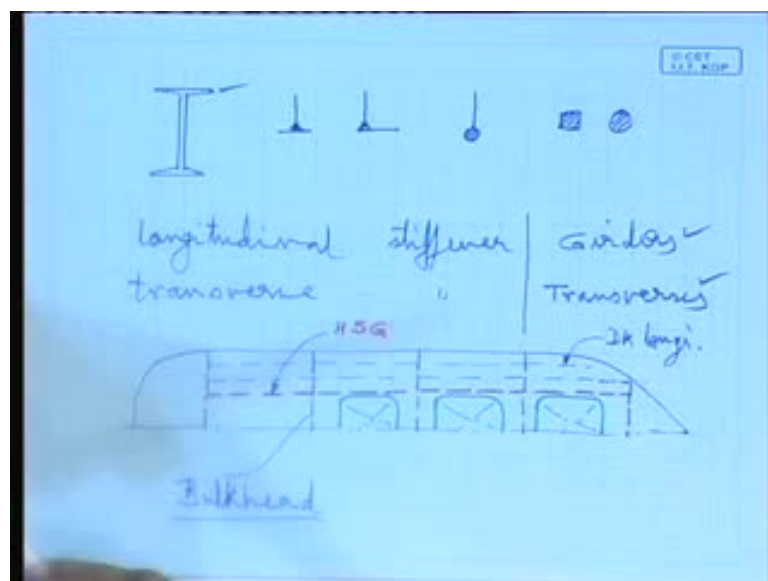 © CET
I.I.T. KGP
longitudinal stiffener Girders
transverse " Transverses
HSG
Dk longi.
Bulkhead